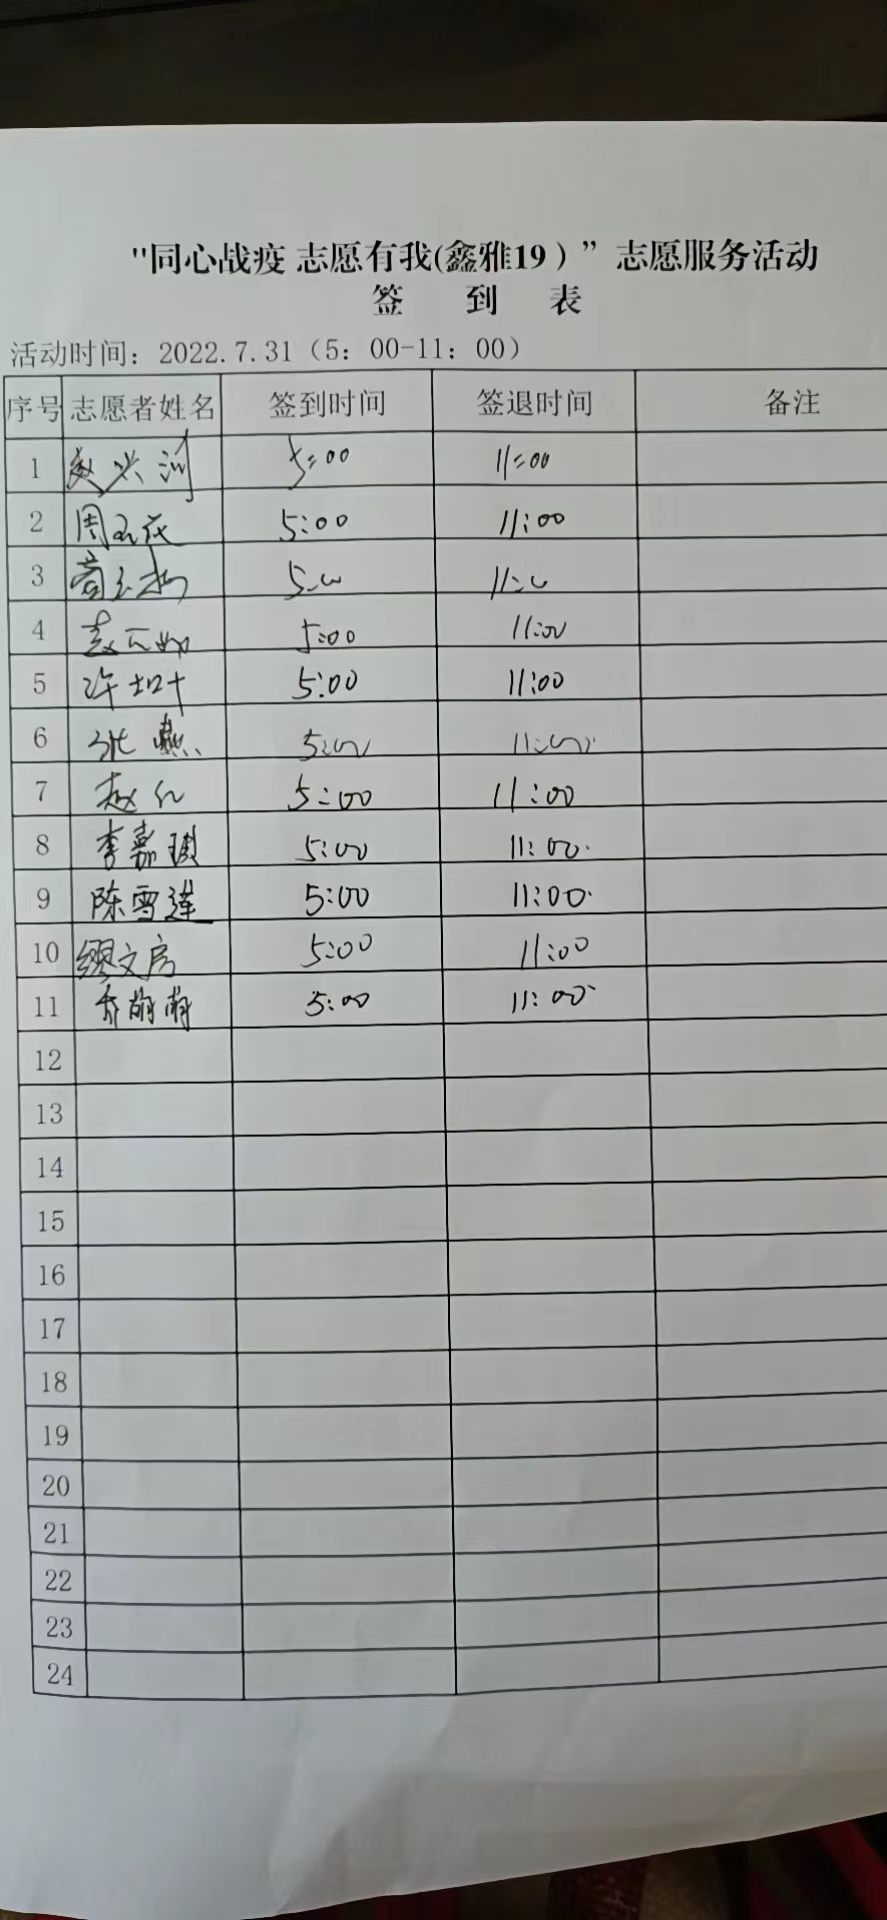 "同心战疫 志愿有我(鑫雅19）”志愿服务活动
签 到 表
活动时间：2022.7.31（5：00-11：00）
序号 志愿者姓名 签到时间 签退时间 备注
1 赵兴河 5:00 11:00
2 周 5:00 11:00
3
4 5:00 11:00
5 许 叶 5:00 11:00
6 张燕 5:00 11:00
7 赵 5:00 11:00
8 李嘉琪 5:00 11:00
9 陈雪莲 5:00 11:00
10 缪文房 5:00 11:00
11 乔萌萌 5:00 11:00
12
13
14
15
16
17
18
19
20
21
22
23
24